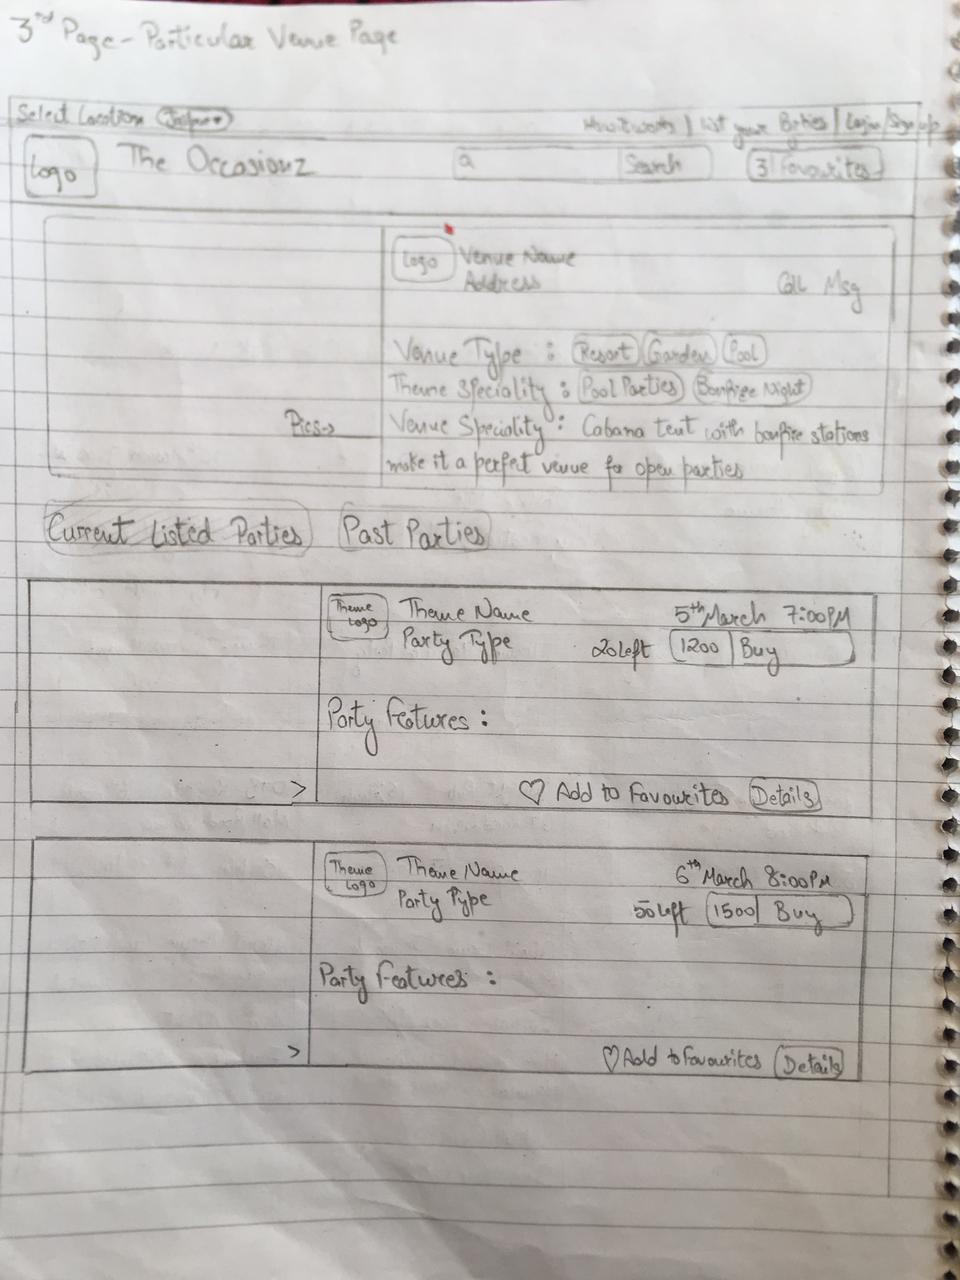 3rd Page - Particular Venue Page
Select Location Jaipur
How it works | List your Parties | Login/Sign up
Logo The Occasionz Search 3 Favourites
Logo Venue Name
Address Call Msg
Venue Type : Resort Garden Pool
Theme Speciality : Pool Parties Bonfire Night
Pics→ Venue Speciality : Cabana tent with bonfire stations
make it a perfect venue for open parties
Current Listed Parties Past Parties
Theme Logo Theme Name 5th March 7:00PM
Party Type 20 left 1200 Buy
Party Features :
> ♡ Add to Favourites Details
Theme Logo Theme Name 6th March 8:00PM
Party Type 50 left 1500 Buy
Party Features :
> ♡ Add to Favourites Details